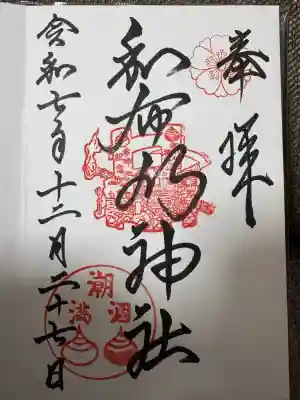 奉拝
和布刈神社
令和七年十二月二十七日
潮涸
満